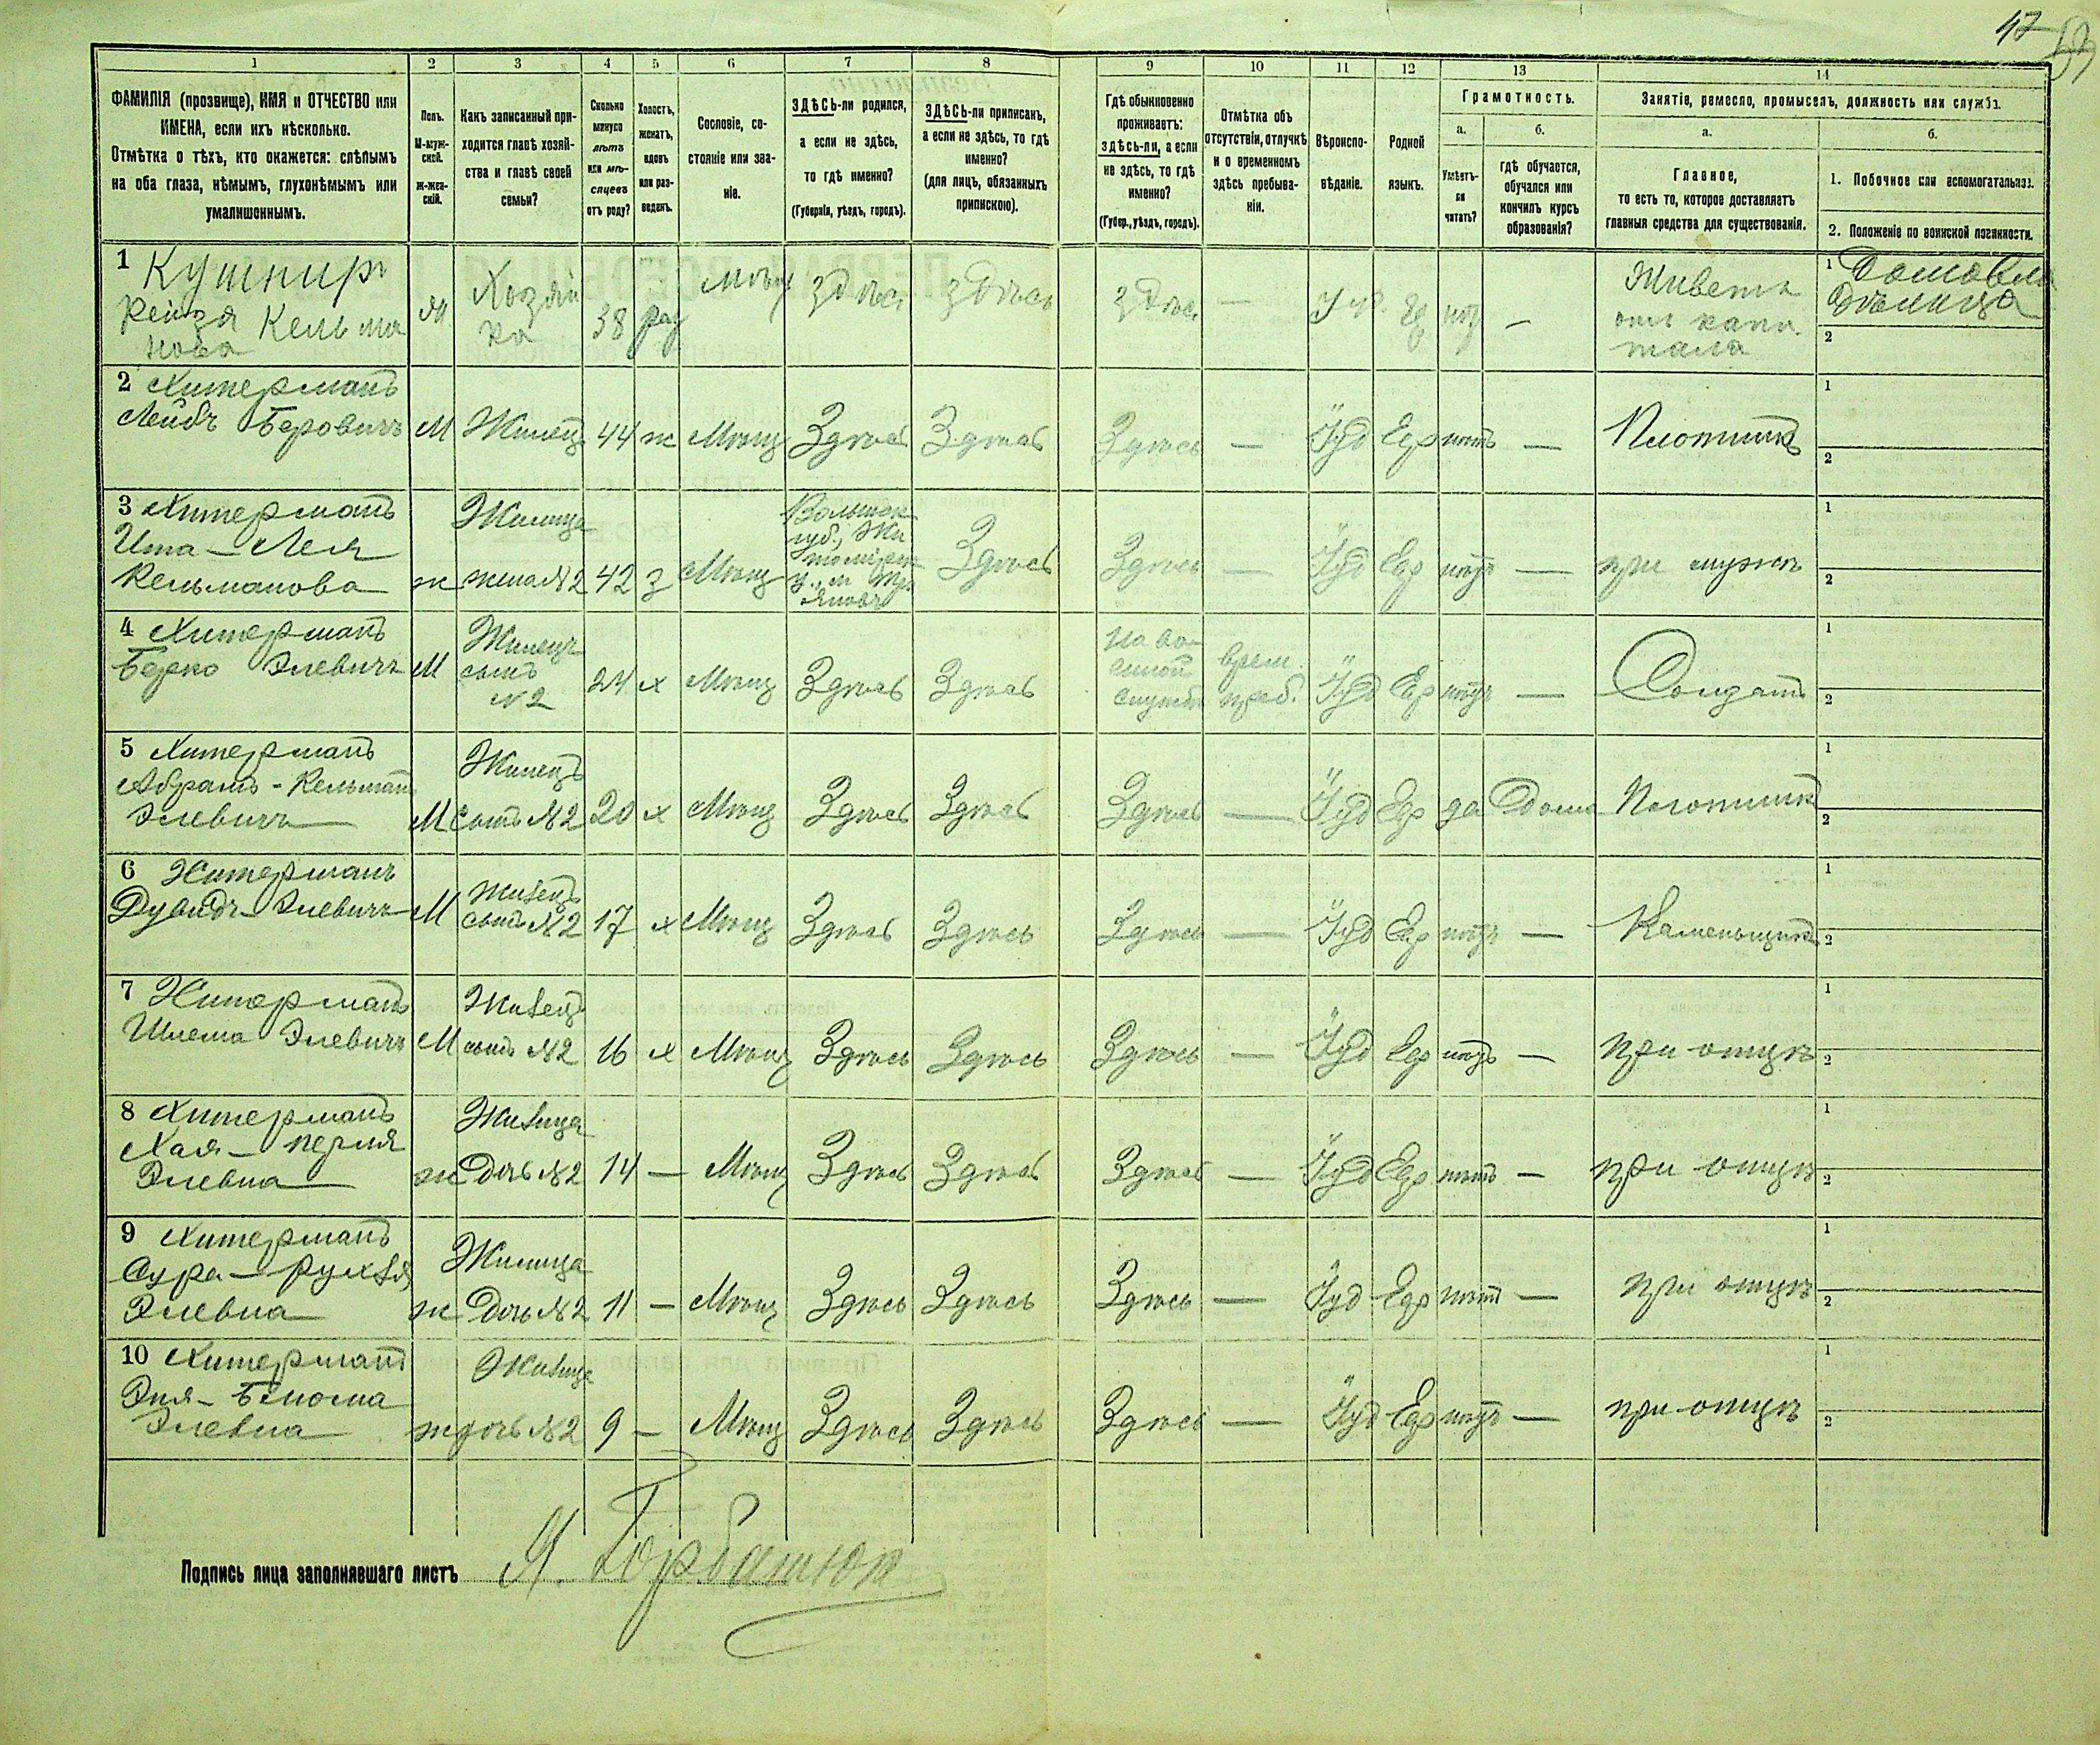 47
1 2 3 4 5 6 7 8 9 10 11 12 13 14
ФАМИЛІЯ (прозвище), ИМЯ и ОТЧЕСТВО или
ИМЕНА, если ихъ нѣсколько.
Отмѣтка о тѣхъ, кто окажется: слѣпымъ
на оба глаза, нѣмымъ, глухонѣмымъ или
умалишоннымъ.
Полъ.
М-муж-
ской.
Ж-жен-
скій.
Какъ записанный при-
ходится главѣ хозяй-
ства и главѣ своей
семьи?
Сколько
минуло
лѣтъ
или мѣ-
сяцевъ
отъ роду?
Холостъ,
женатъ,
вдовъ
или раз-
веденъ.
Сословіе, со-
стояніе или зва-
ніе.
ЗДѢСЬ-ли родился,
а если не здѣсь,
то гдѣ именно?
(Губернія, уѣздъ, городъ).
ЗДѢСЬ-ли приписанъ,
а если не здѣсь, то гдѣ
именно?
(для лицъ, обязанныхъ
припискою).
Гдѣ обыкновенно
проживаетъ:
здѣсь-ли, а если
не здѣсь, то гдѣ
именно?
(Губер., уѣздъ, городъ).
Отмѣтка объ
отсутствіи, отлучкѣ
и о временномъ
здѣсь пребыва-
ніи.
Вѣроиспо-
вѣданіе.
Родной
языкъ.
Грамотность.
а.
Умѣетъ-
ли
читать?
б.
гдѣ обучается,
обучался или
кончилъ курсъ
образованія?
Занятіе, ремесло, промыселъ, должность или служба.
а.
Главное,
то есть то, которое доставляетъ
главныя средства для существованія.
б.
1. Побочное или вспомогательное.
2. Положеніе по воинской повинности.
1 Кушниръ
Рейзя Кельма
нова
Хозяй
ка
38
раз
мѣщ
здѣсь
здѣсь
здѣсь
—
Іуд.
Ев
нѣт
—
Живетъ
отъ капи
тала
1 Домовла
дѣлица
2
2 Хитерманъ
Лейбъ Беровичъ
М
Жилецъ
44
ж
Мѣщ
Здѣсь
Здѣсь
Здѣсь
—
Іуд
Евр
нѣтъ
—
Плотникъ
1
2
3 Хитерманъ
Ита-Лея
Кельманова
ж
Жилица
жена №2
42
з
Мѣщ
Волынск
губ., Жи
томірск
у., м. Тро
яновъ
Здѣсь
Здѣсь
—
Іуд
Евр
нѣтъ
—
при мужѣ
1
2
4 Хитерманъ
Берко Элевичъ
М
Жилецъ
сынъ
№2
24
х
Мѣщ
Здѣсь
Здѣсь
На во-
енной
службѣ
врем.
преб.
Іуд
Евр
нѣтъ
—
Солдатъ
1
2
5 Хитерманъ
Абрамъ-Кельманъ
Элевичъ
М
Жилецъ
Сынъ №2
20
х
Мѣщ
Здѣсь
Здѣсь
Здѣсь
—
Іуд
Евр
да
Дома
Плотникъ
1
2
6 Хитерманъ
Дувидъ Элевичъ
М
Жилецъ
сынъ №2
17
х
Мѣщ
Здѣсь
Здѣсь
Здѣсь
—
Іуд
Евр
нѣтъ
—
Каменьщикъ
1
2
7 Хитерманъ
Шлема Элевичъ
М
Жилецъ
сынъ №2
16
х
Мѣщ
Здѣсь
Здѣсь
Здѣсь
—
Іуд
Евр
нѣтъ
—
при отцѣ
1
2
8 Хитерманъ
Хая-Перля
Элевна
ж
Жилица
Дочь №2
14
—
Мѣщ
Здѣсь
Здѣсь
Здѣсь
—
Іуд
Евр
нѣтъ
—
при отцѣ
1
2
9 Хитерманъ
Сура-Рухля
Элевна
ж
Жилица
Дочь №2
11
—
Мѣщ
Здѣсь
Здѣсь
Здѣсь
—
Іуд
Евр
нѣтъ
—
при отцѣ
1
2
10 Хитерманъ
Элевна
ж
Жилица
дочь №2
9
—
Мѣщ
Здѣсь
Здѣсь
Здѣсь
—
Іуд
Евр
нѣтъ
—
при отцѣ
1
2
Подпись лица заполнявшаго листъ
Горбатюк